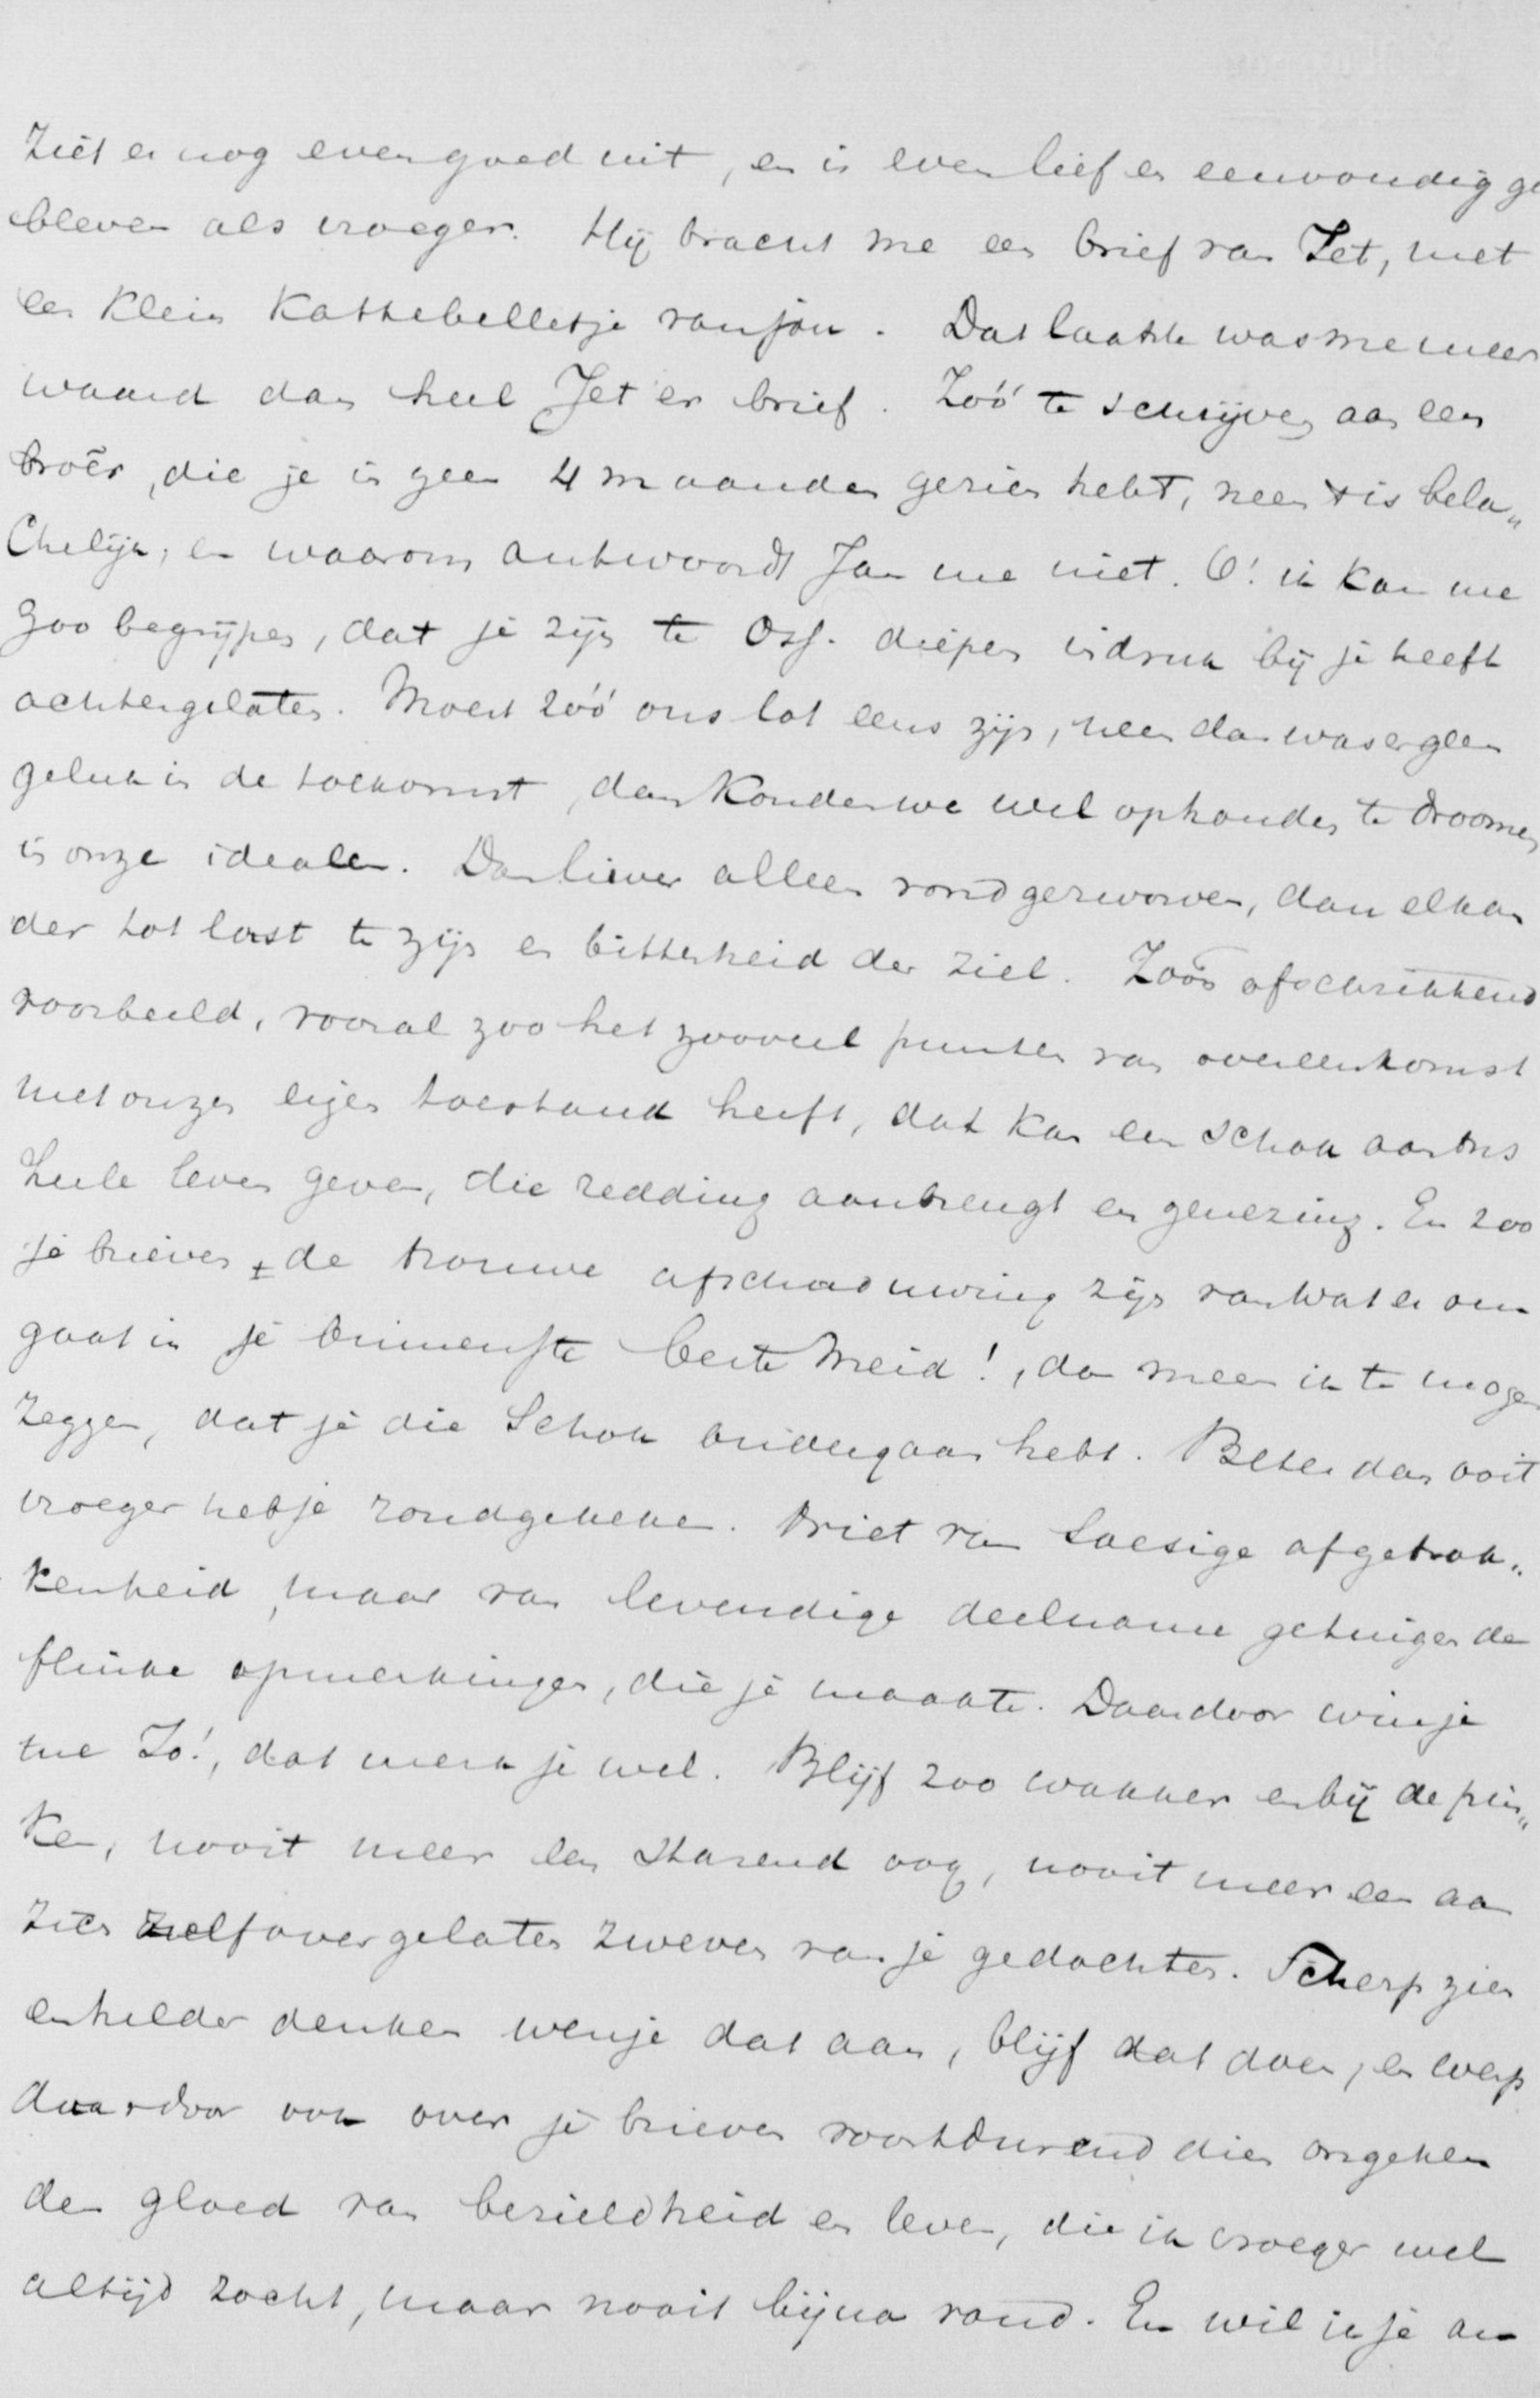 Ziet er nog even goed uit, en is even lief en eenvoudig ge
bleven als vroeger. Hij bracht me een brief van Jet, met
een klein kattebelletje van jou. Dat laatste was me meer
waard dan heel Jet er brief. Zóó te schrijven aan een
broêr, die je in geen 4 maanden gezien hebt, neen 't is bela„
chelijk, en waarom antwoordt Jan me niet. O! ik kan me
zoo begrijpen, dat je zijn te Osf. diepen indruk bij je heeft
achtergelaten. Moest zóó ons lot eens zijn, neen dan was er geen
geluk in de toekomst, dan konden we wel ophouden te droomen
in onze idealen. Dan liever alleen rondgezworven, dan elkan
der tot last te zijn en bitterheid der ziel. Zoo'n afschrikkend
voorbeeld, vooral zoo het zooveel punten van overeenkomst
met onzen eigen toestand heeft, dat kan een schok aan ons
heele leven geven, die redding aanbrengt en genezing. En zoo
je brieven ± de trouwe afschaduwing zijn van wat er om
gaat in je binnenste beste meid!, dan meen ik te mogen
zeggen, dat je die schok ondergaan hebt. Beter dan ooit
vroeger heb je rondgekeken. Niet van soesige afgetrok„
kenheid, maar van levendige deelname getuigen de
flinke opmerkingen, die je maakte. Daardoor win je
me Jo!, dat merk je wel. Blijf zoo wakker en bij de pin„
ken, nooit meer een starend oog, nooit meer een aan
zich zelf overgelaten zweven van je gedachten. Scherp zien
en helder denken wen je dat aan, blijf dat doen, en werp
daardoor ook over je brieven voortdurend dien ongeken
den gloed van bezieldheid en leven, die ik vroeger wel
altijd zocht, maar nooit bijna vond. En wil ik je an